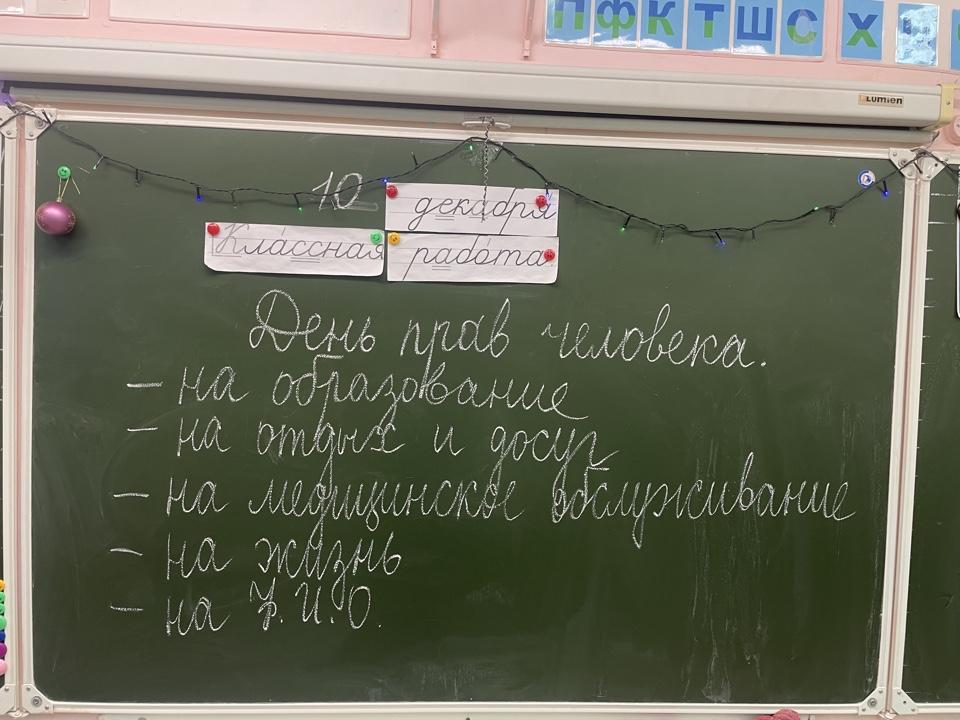 П Ф К Т Ш С Х
Lumien
10 декабря
Классная работа
День прав человека.
- на образование
- на отдых и досуг
- на медицинское обслуживание
- на жизнь
- на Ф.И.О.